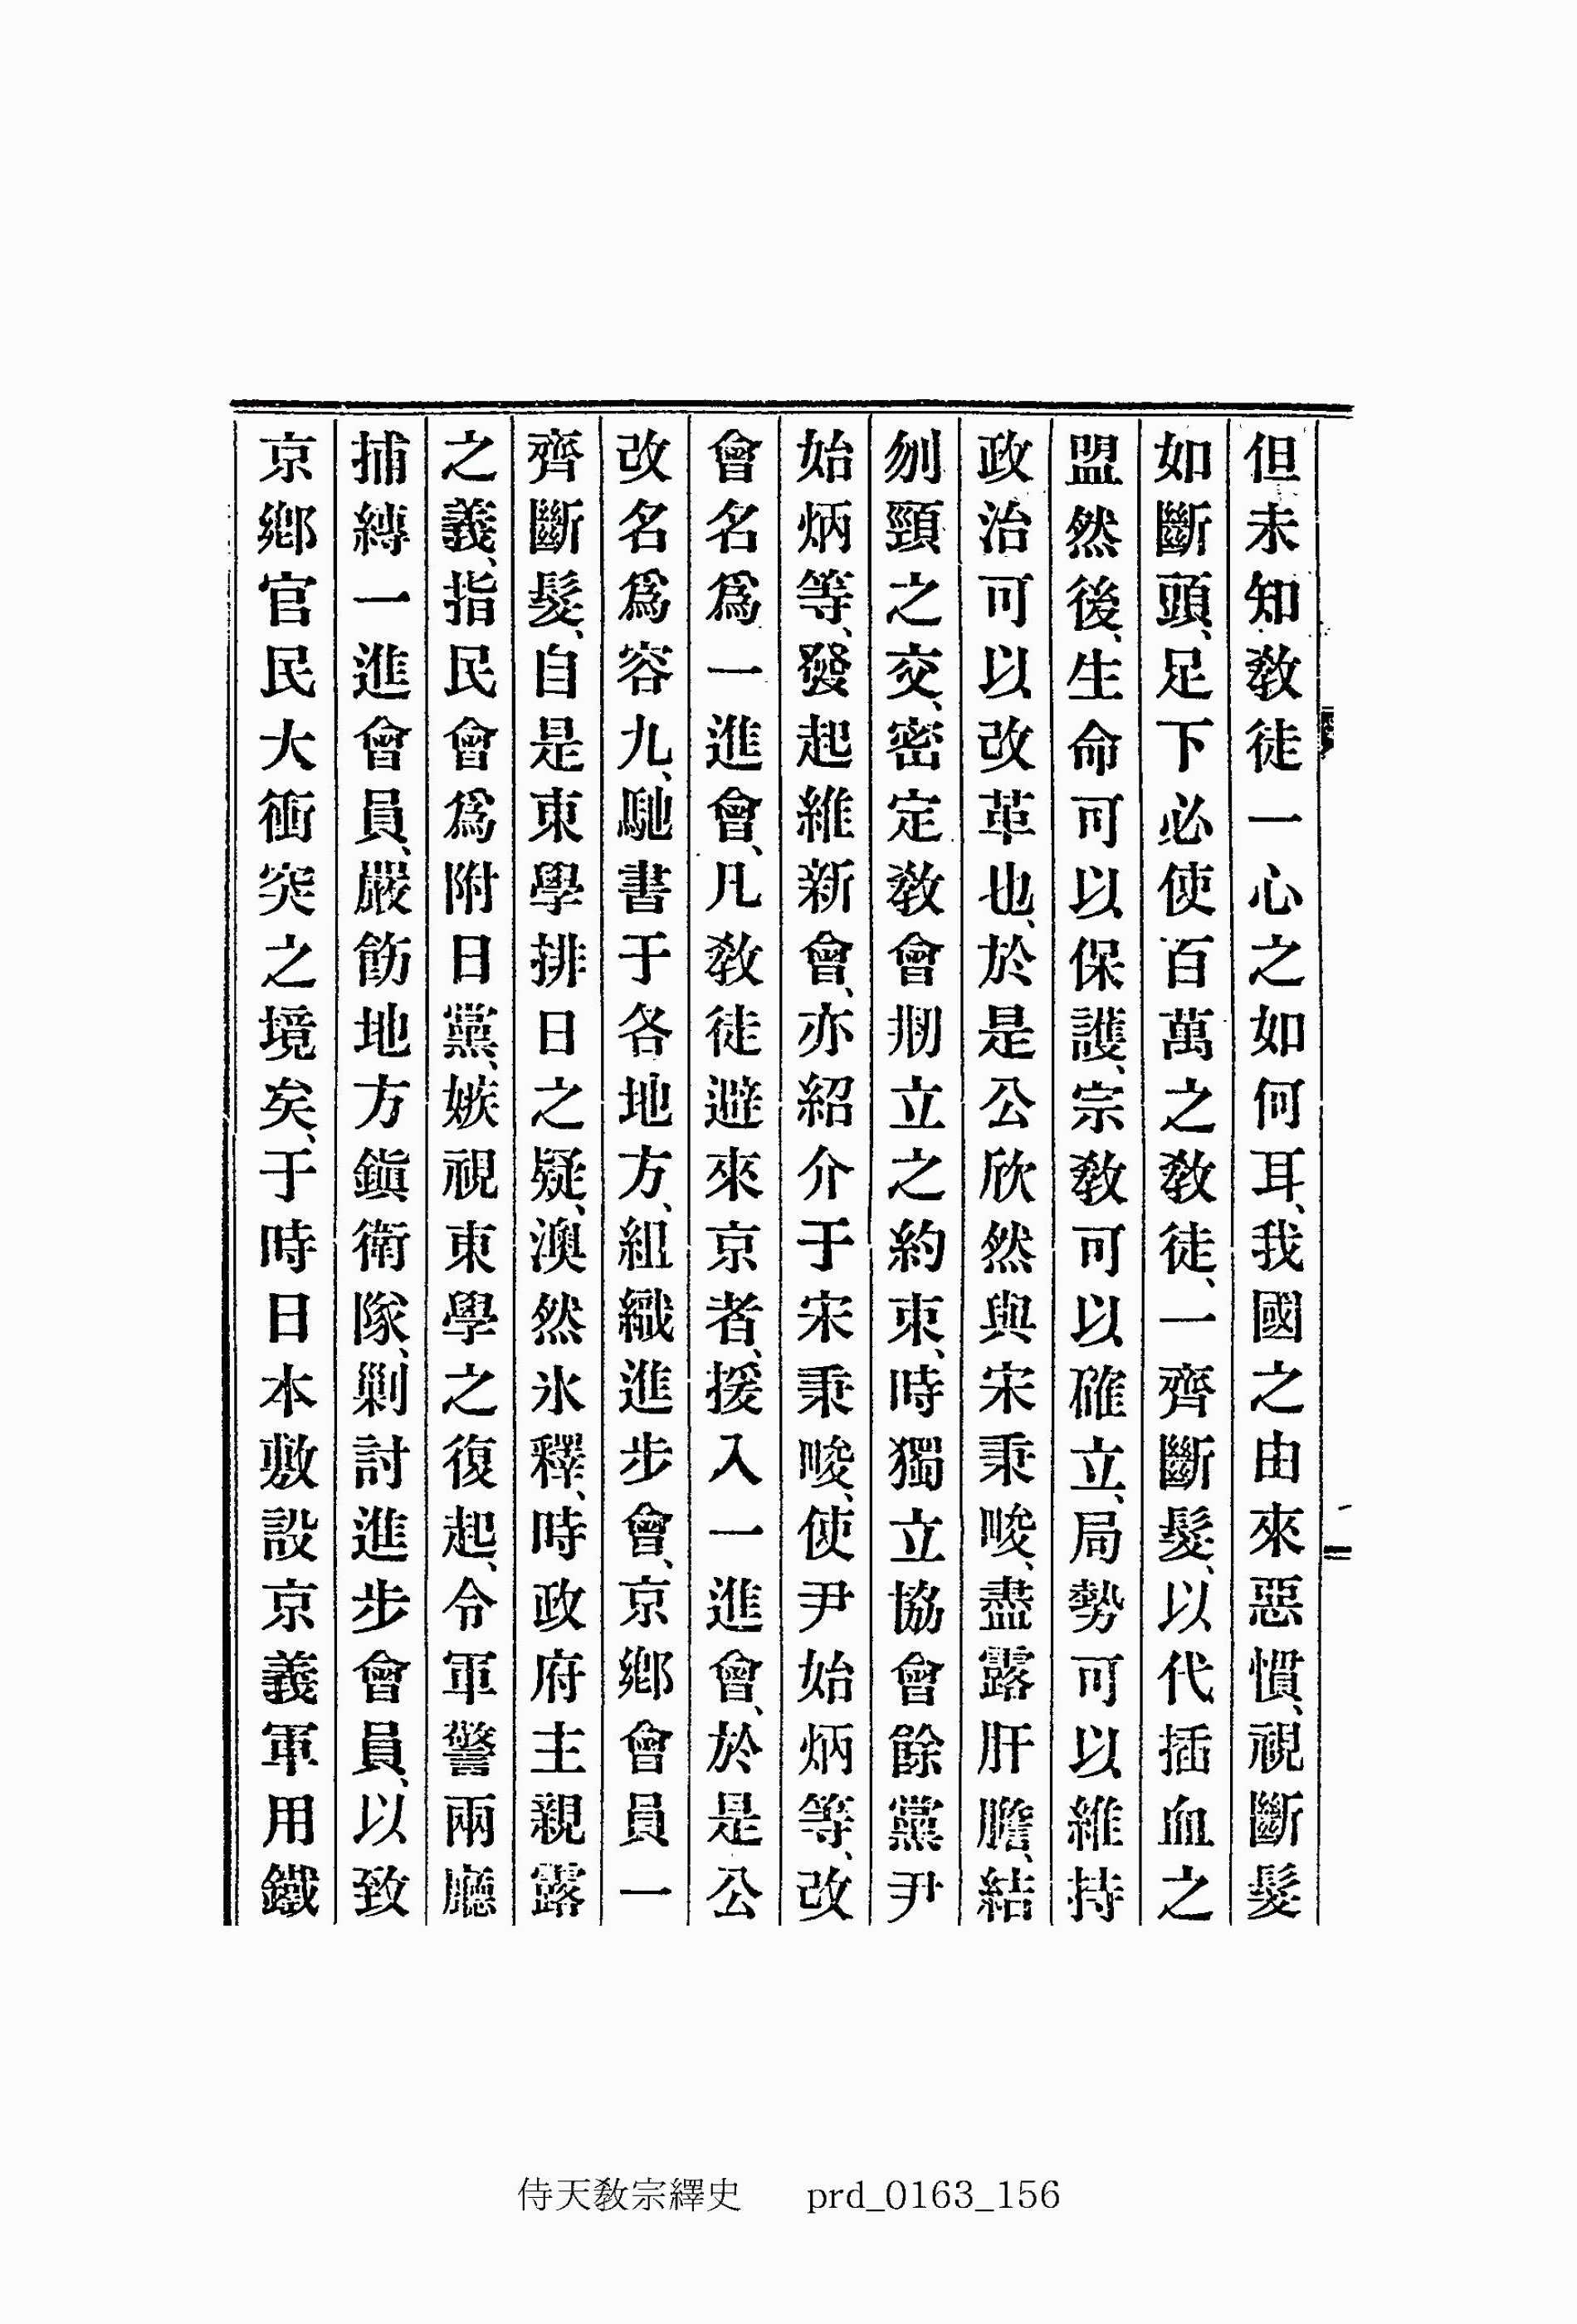 但未知敎徒一心之如何耳、我國之由來惡慣、視斷髮
如斷頭、足下必使百萬之敎徒、一齊斷髮、以代插血之
盟然後、生命可以保護、宗敎可以確立、局勢可以維持
政治可以改革也、於是公欣然與宋秉畯、盡露肝膽、結
刎頸之交、密定敎會刱立之約束、時獨立協會餘黨尹
始炳等、發起維新會、亦紹介于宋秉畯、使尹始炳等、改
會名爲一進會、凡敎徒避來京者、援入一進會、於是公
改名爲容九、馳書于各地方、組織進步會、京鄕會員一
齊斷髮、自是東學排日之疑、渙然氷釋、時政府主親露
之義、指民會爲附日黨、嫉視東學之復起、令軍警兩廳
捕縛一進會員、嚴飭地方鎭衛隊、剿討進步會員、以致
京鄕官民大衝突之境矣、于時日本敷設京義軍用鐵
侍天敎宗繹史 prd_0163_156